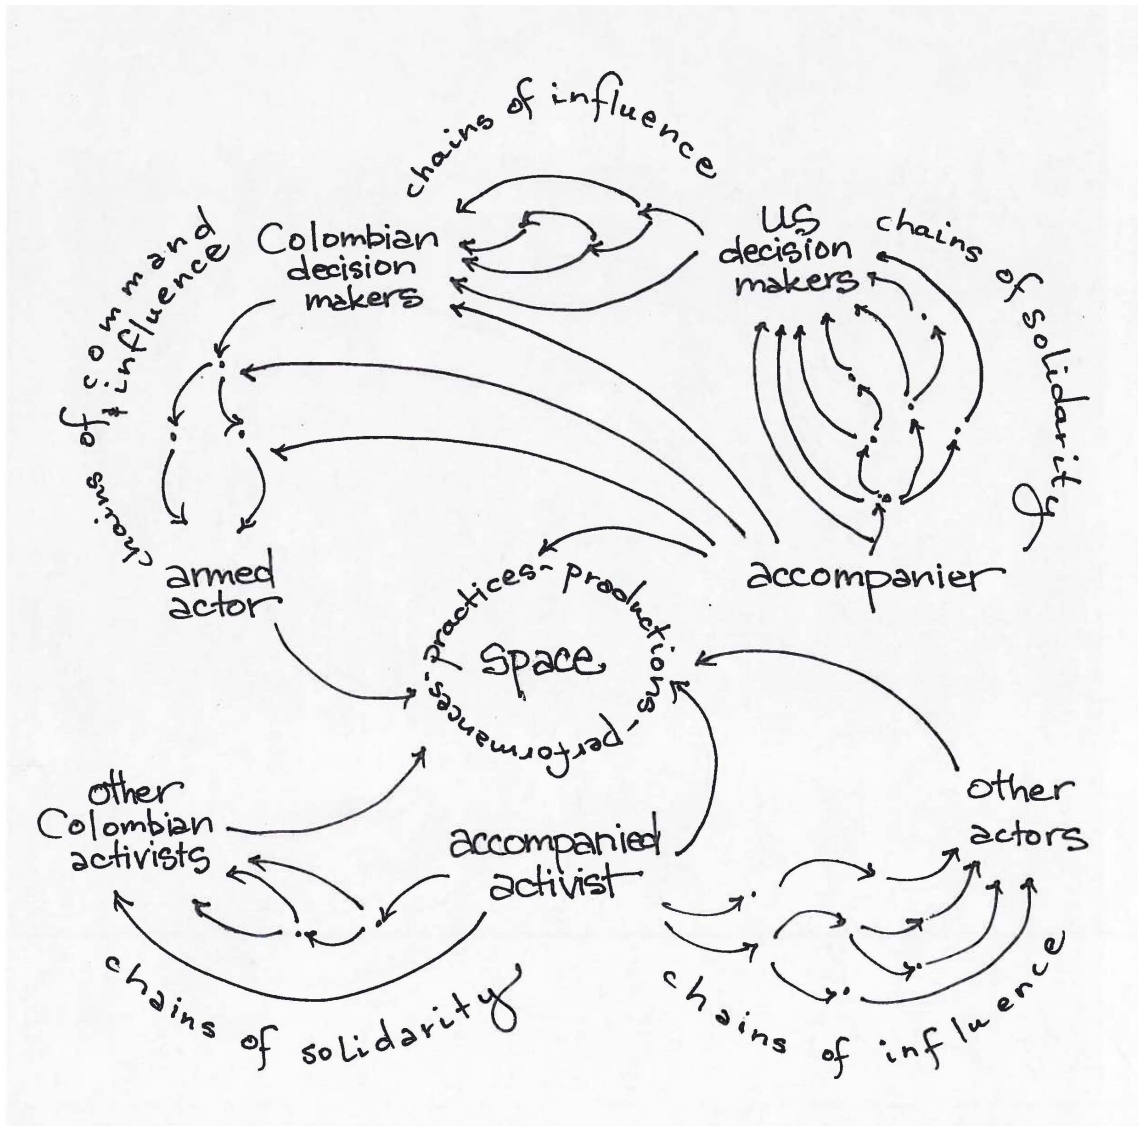 chains of influence
chains of command
& influence
Colombian
decision
makers
US
decision
makers
chains of solidarity
armed
actor
accompanier
practices - productions - performances -
space
other
Colombian
activists
accompanied
activist
other
actors
chains of solidarity
chains of influence